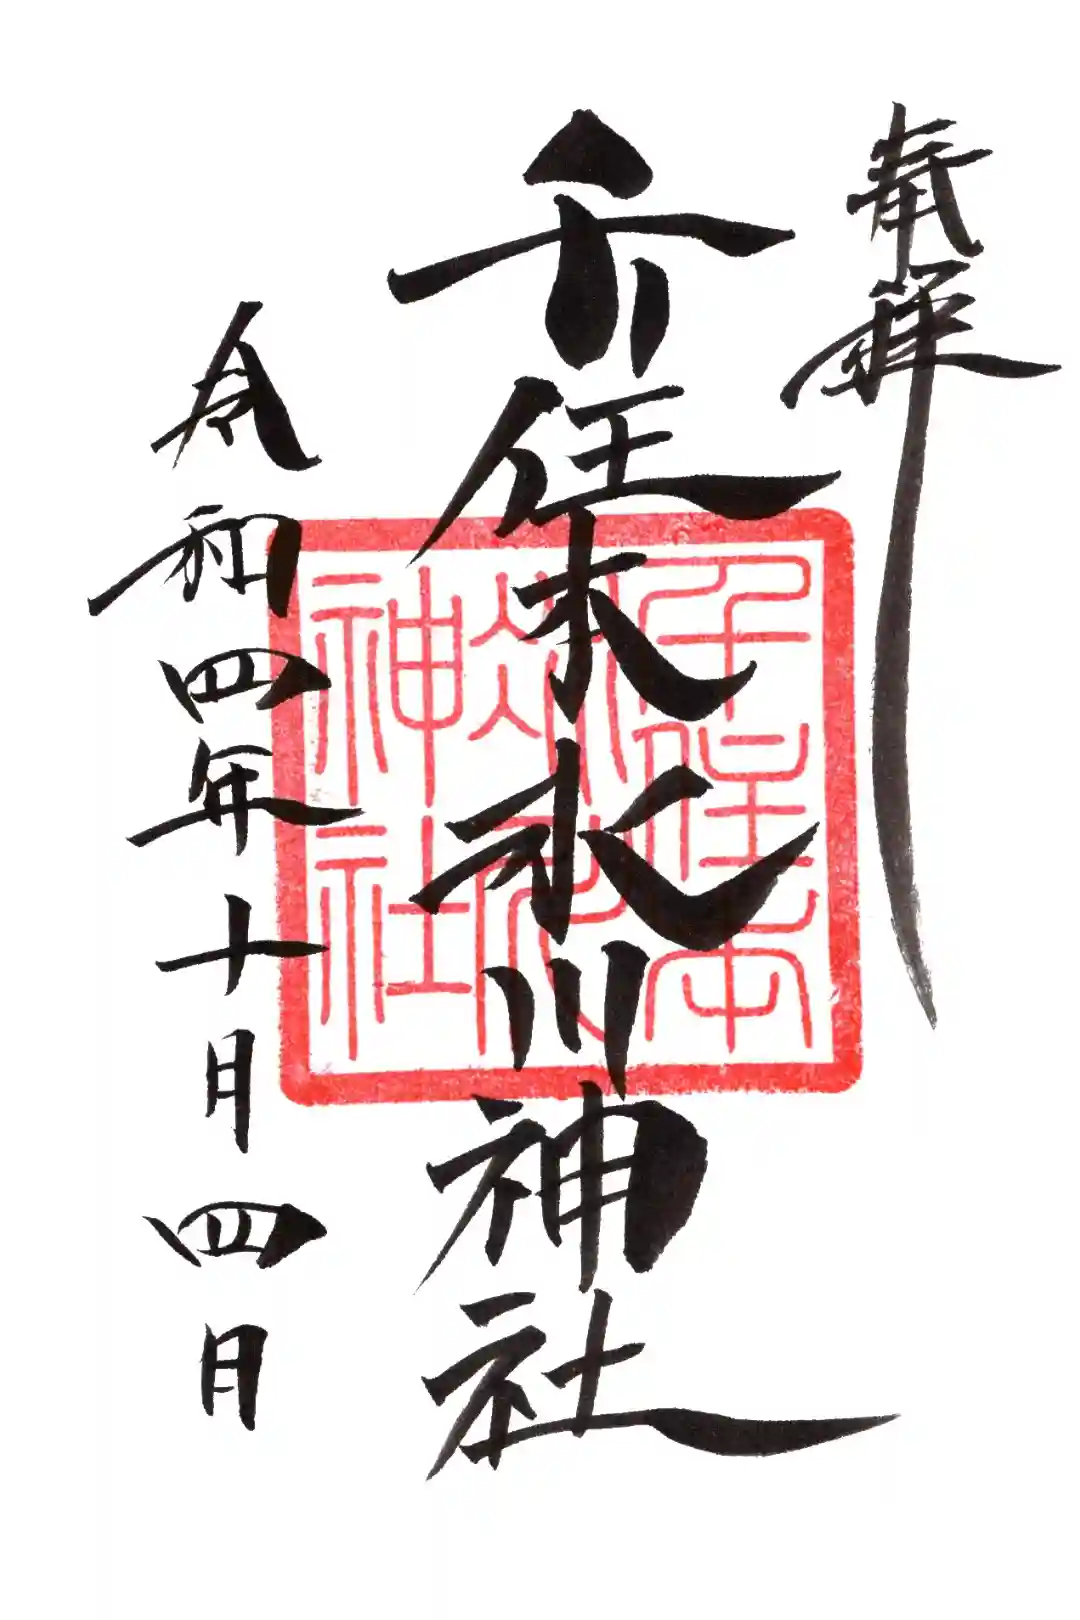 奉拝
千住本氷川神社
令和四年十月四日
千住本
氷川
神社